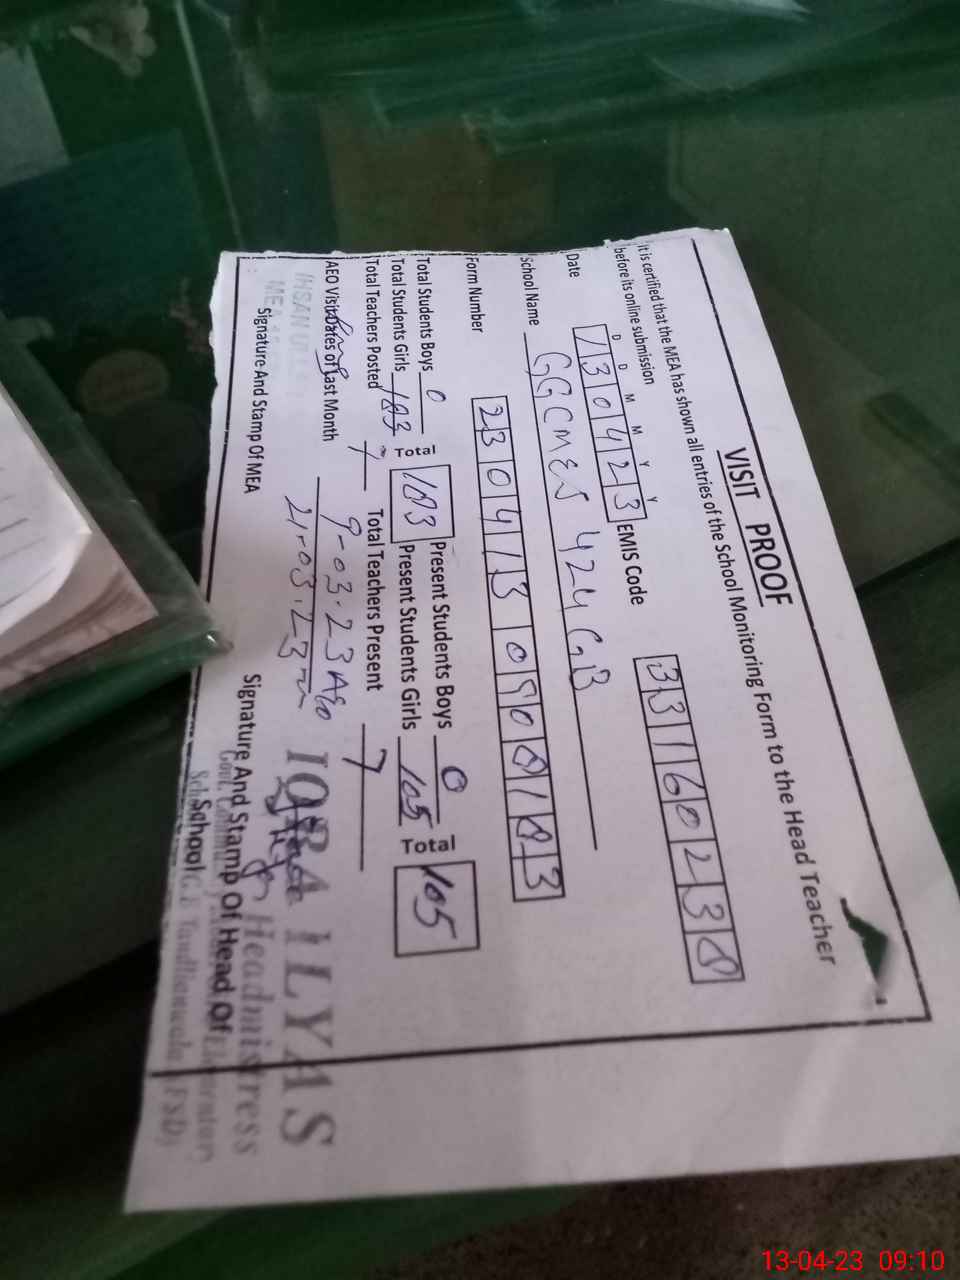 VISIT PROOF
It is certified that the MEA has shown all entries of the School Monitoring Form to the Head Teacher
before its online submission
D D M M Y Y
Date 130423 EMIS Code 33160238
School Name GGCMES 424 G.B
Form Number
Total Students Boys 0 Present Students Boys 0
Total Total
Total Students Girls 183 183 Present Students Girls 105 105
Total Teachers Posted 7 Total Teachers Present 7
AEO Visit Dates of Last Month 9-03.23 AEO
21.03.23
IHSAN ULL
MEA
Signature And Stamp Of MEA
IQRA ILYAS
Headmistress
Signature And Stamp Of Head Of
School
13-04-23 09:10